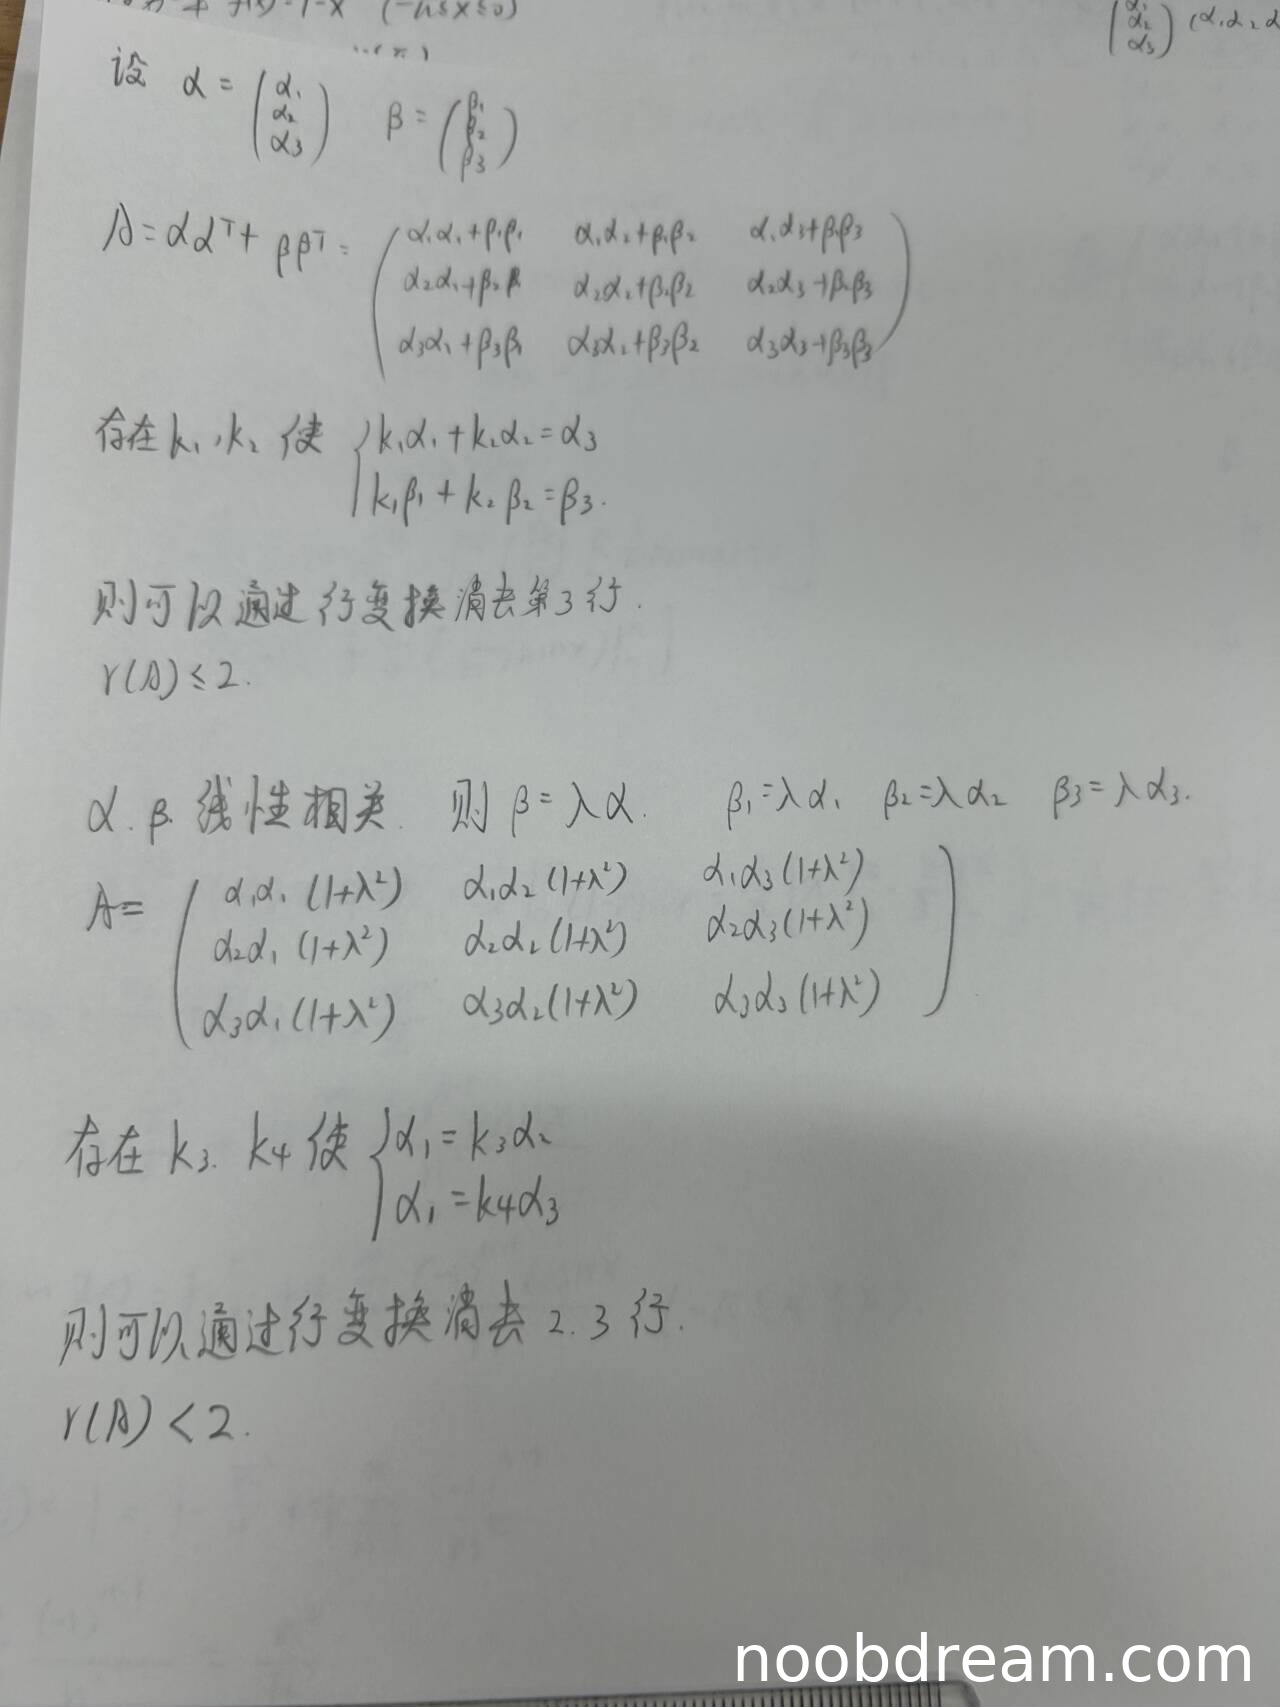 f(x)=1-x (-π≤x≤0)
(α₁ α₂ α₃) (α₁ α₂ α
设 α = (α₁ α₂ α₃) β = (β₁ β₂ β₃)
A = ααᵀ + ββᵀ =
α₁α₁+β₁β₁ α₁α₂+β₁β₂ α₁α₃+β₁β₃
α₂α₁+β₂β α₂α₂+β₂β₂ α₂α₃+β₂β₃
α₃α₁+β₃β₁ α₃α₂+β₃β₂ α₃α₃+β₃β₃
存在 k₁,k₂ 使 { k₁α₁+k₂α₂=α₃
k₁β₁+k₂β₂=β₃.
则可以通过行变换消去第3行.
r(A)≤2.
α.β.线性相关. 则 β=λα. β₁=λα₁ β₂=λα₂ β₃=λα₃.
A=
α₁α₁(1+λ²) α₁α₂(1+λ²) α₁α₃(1+λ²)
α₂α₁(1+λ²) α₂α₂(1+λ²) α₂α₃(1+λ²)
α₃α₁(1+λ²) α₃α₂(1+λ²) α₃α₃(1+λ²)
存在 k₃. k₄ 使 { α₁=k₃α₂
α₁=k₄α₃
则可以通过行变换消去 2.3行.
r(A)<2.
noobdream.com